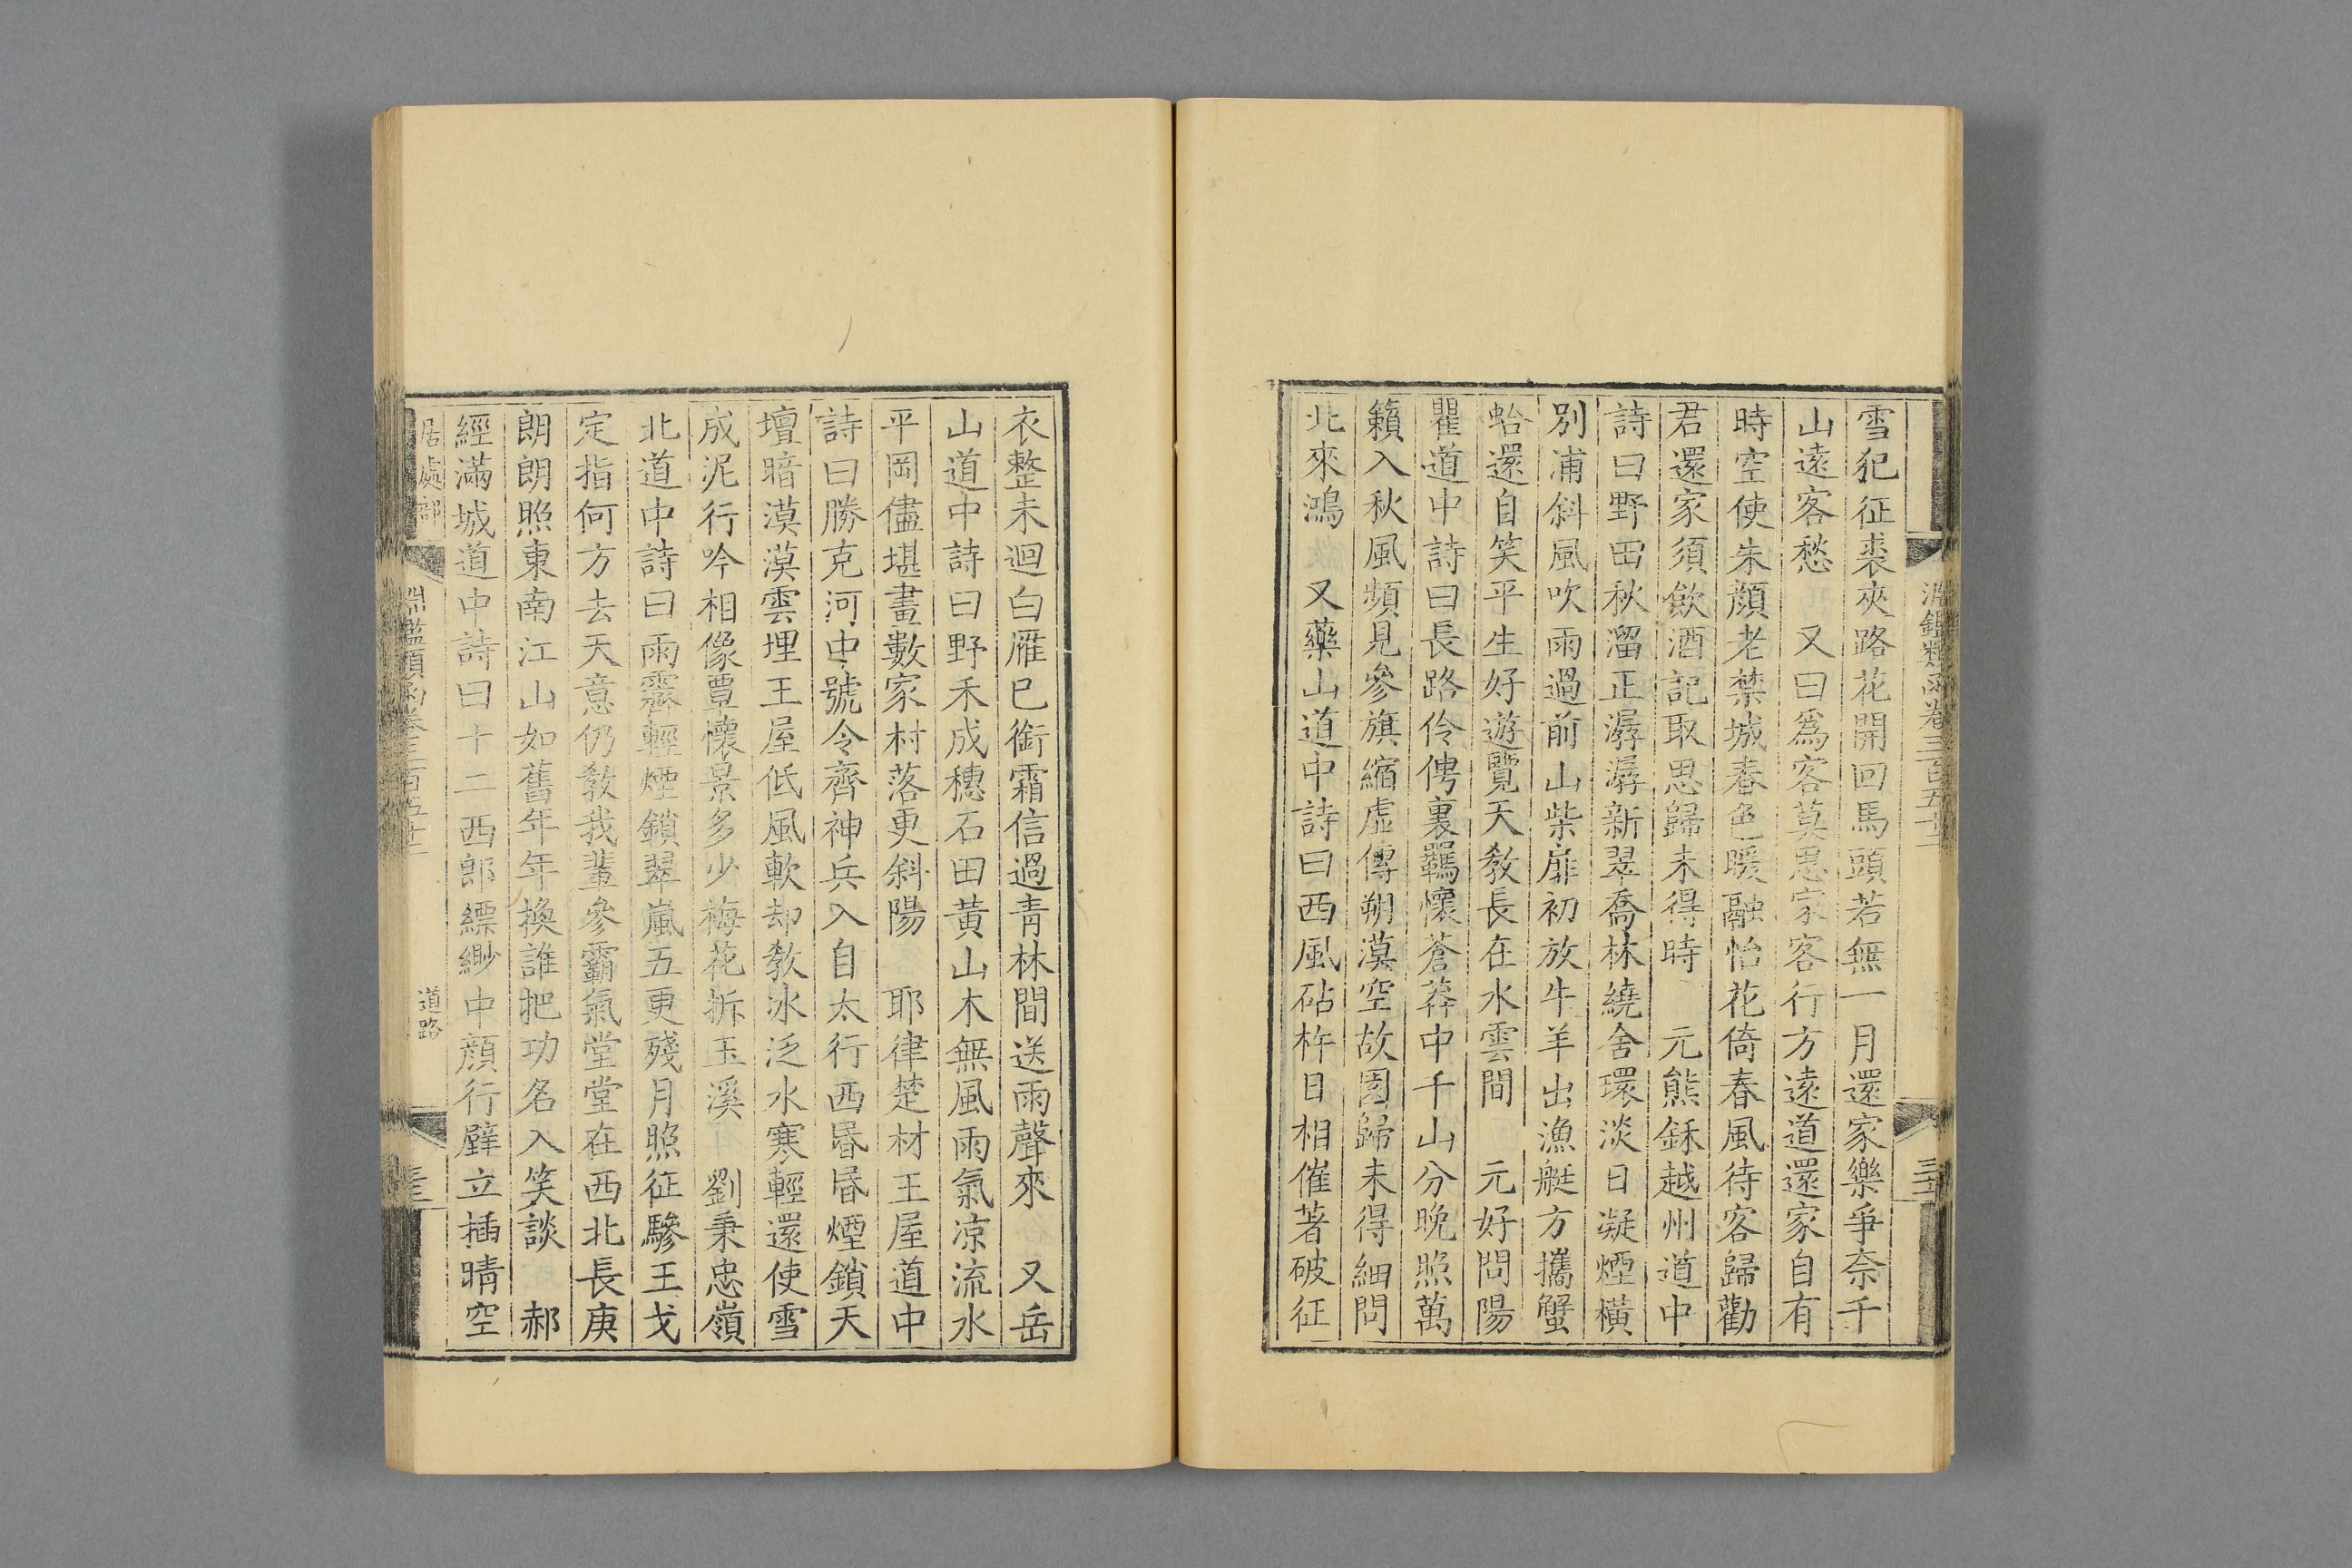 淵鑑類函卷三百五十
雪犯征裘夾路花開回馬頭若無一月還家樂爭奈千
山遠客愁　又曰爲客莫思家客行方遠道還家自有
時空使朱顏老禁城春色暖融怡花倚春風待客歸勸
君還家須飲酒記取思歸未得時　元熊鉌越州道中
詩曰野田秋溜正潺潺新翠喬林繞舍環淡日凝煙橫
別浦斜風吹雨過前山柴扉初放牛羊出漁艇方攜蟹
蛤還自笑平生好遊覽天教長在水雲間　元好問陽
瞿道中詩曰長路伶俜裏羈懷蒼莽中千山分晚照萬
籟入秋風頻見參旗縮虛傳朔漠空故園歸未得細問
北來鴻　又藥山道中詩曰西風砧杵日相催著破征
衣整未迴白雁已銜霜信過青林間送雨聲來　又岳
山道中詩曰野禾成穗石田黃山木無風雨氣凉流水
平岡儘堪畫數家村落更斜陽　耶律楚材王屋道中
詩曰勝克河中號令齊神兵入自太行西昬昬煙鎖天
壇暗漠漠雲埋王屋低風軟却教冰泛水寒輕還使雪
成泥行吟相像覃懷景多少梅花拆玉溪　劉秉忠嶺
北道中詩曰雨霽輕煙鎖翠嵐五更殘月照征驂王戈
定指何方去天意仍教我輩參霸氣堂堂在西北長庚
朗朗照東南江山如舊年年換誰把功名入笑談　郝
經滿城道中詩曰十二西郎縹緲中顏行壁立插晴空
居處部
淵鑑類函卷三百五十
道路